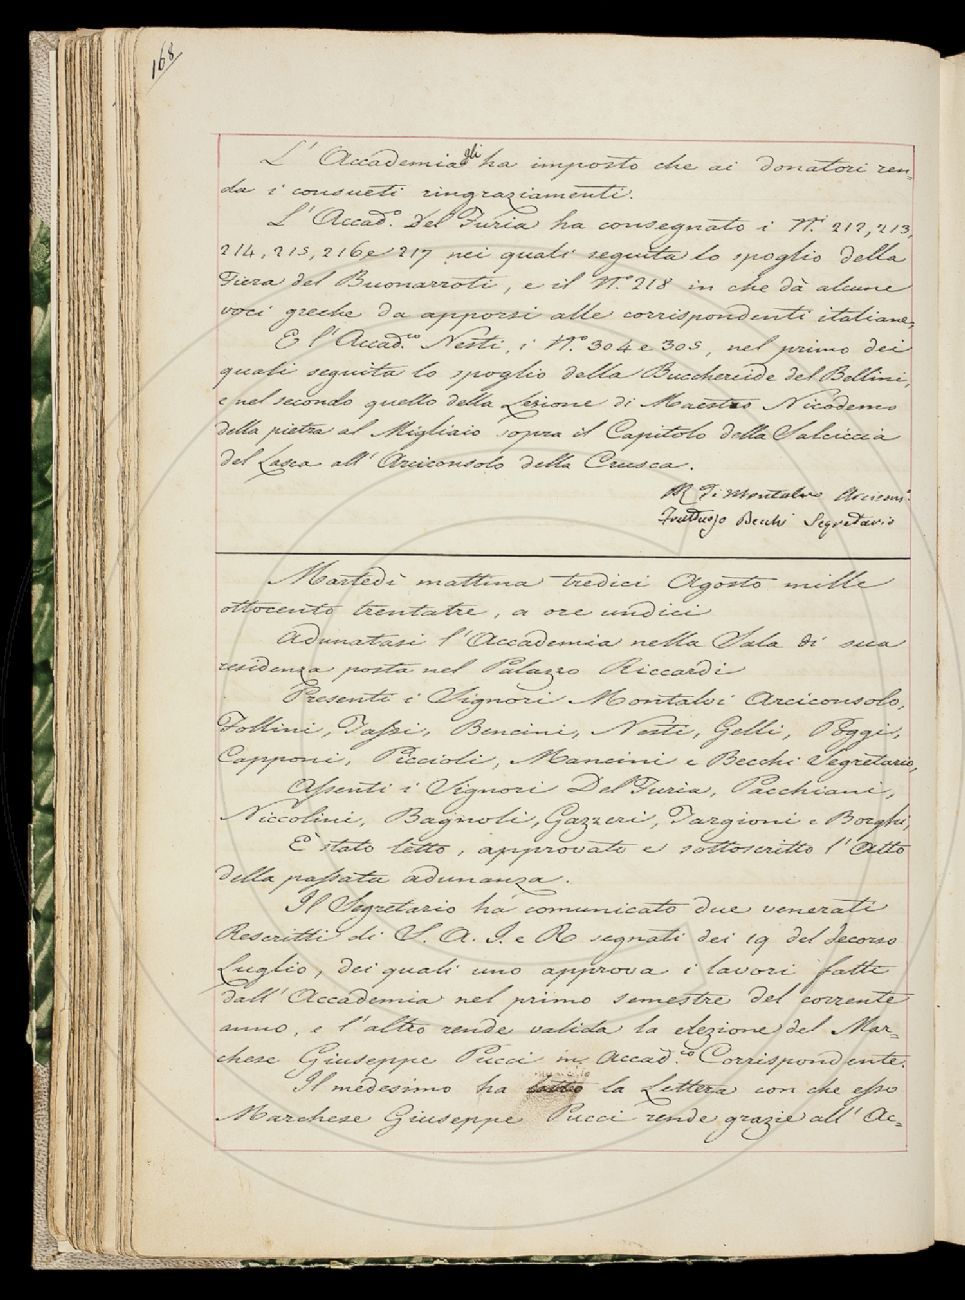 168
L' Accademia gli ha imposto che ai donatori ren=
da i consueti ringraziamenti.
L' Accad.o Del Furia ha consegnato i N.i 212, 213,
214, 215, 216 e 217 nei quali seguita lo spoglio della
Fiera del Buonarroti, e il N.o 218 in che dà alcune
voci greche da apporsi alle corrispondenti italiane.
E l' Accad.co Nesti, i N.i 304 e 305, nel primo dei
quali seguita lo spoglio della Buccherëide del Bellini,
e nel secondo quello della Lezione di Maestro Nicodemo
della pietra al Migliaio sopra il Capitolo della Salciccia
del Lasca all' Arciconsolo della Crusca.
R. Di Montalvo Arcicons.o
Fruttuoso Becchi Segretario
Martedì mattina tredici Agosto mille
ottocento trentatre, a ore undici
Adunatasi l' Accademia nella Sala di sua
residenza posta nel Palazzo Riccardi
Presenti i Signori Montalvi Arciconsolo,
Follini, Tassi, Bencini, Nesti, Gelli, Poggi,
Capponi, Piccioli, Mancini e Becchi Segretario,
Assenti i Signori Del Furia, Pacchiani,
Niccolini, Bagnoli, Gazzeri, Targioni e Borghi,
È stato letto, approvato e sottoscritto l' Atto
della passata adunanza.
Il Segretario ha comunicato due venerati
Rescritti di S. A. I. e R. segnati dei 19 del decorso
Luglio, dei quali uno approva i lavori fatti
dall' Accademia nel primo semestre del corrente
anno, e l' altro rende valida la elezione del Mar=
chese Giuseppe Pucci in Accad.co Corrispondente.
Il medesimo ha letto la Lettera con che esso
Marchese Giuseppe Pucci rende grazie all' Ac=